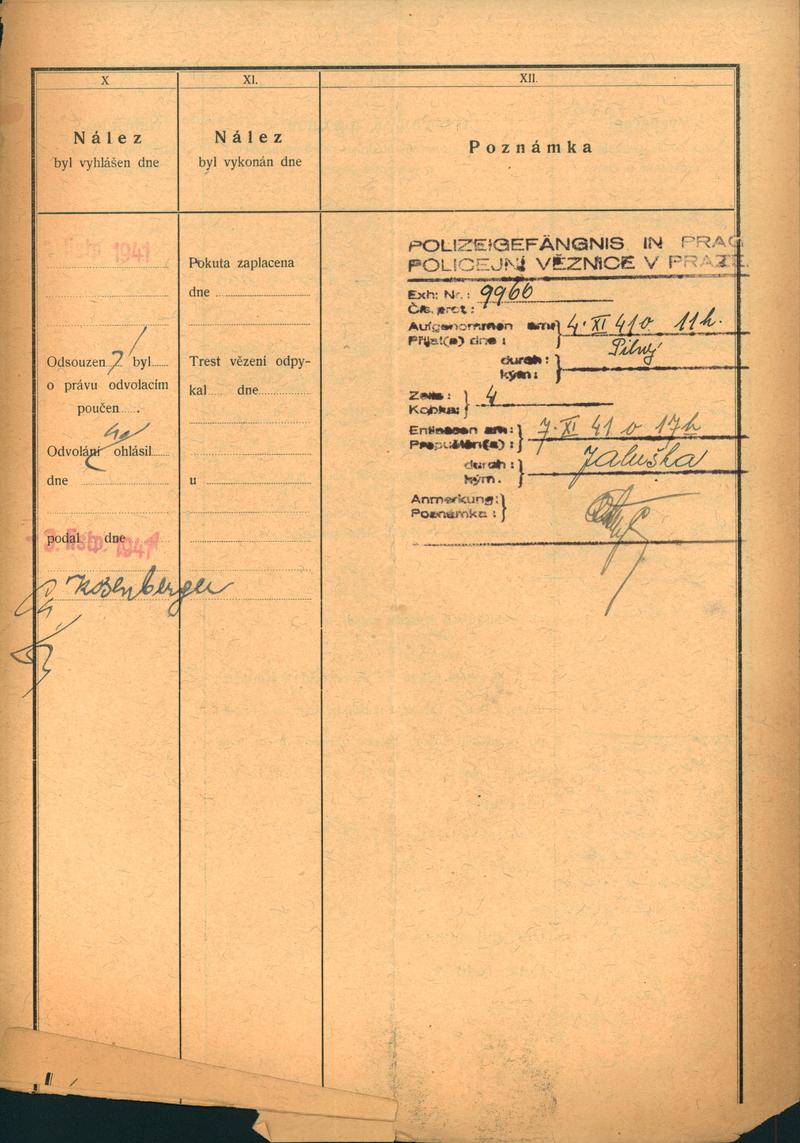 X
Nález
byl vyhlášen dne
listp. 1941
Odsouzen byl
o právu odvolacím
poučen
Odvolání ohlásil
dne
podal dne
3. listp. 1941
XI.
Nález
byl vykonán dne
Pokuta zaplacena
dne
Trest vězení odpy-
kal dne
u
XII.
Poznámka
POLIZEIGEFÄNGNIS IN PRAG
POLICEJNÍ VĚZNICE V PRAZE.
Exh: Nr.: 9966
Čís. prot:
Aufgenommen am: 4. XI 41 o 11 h.
Přijat(a) dne:
durch: Pilný
kým:
Zelle: 4
Kobka:
Entlassen am: 7. XI 41 o 17 h
Propuštěn(a):
durch: Jaluška
kým.
Anmerkung:
Poznámka: